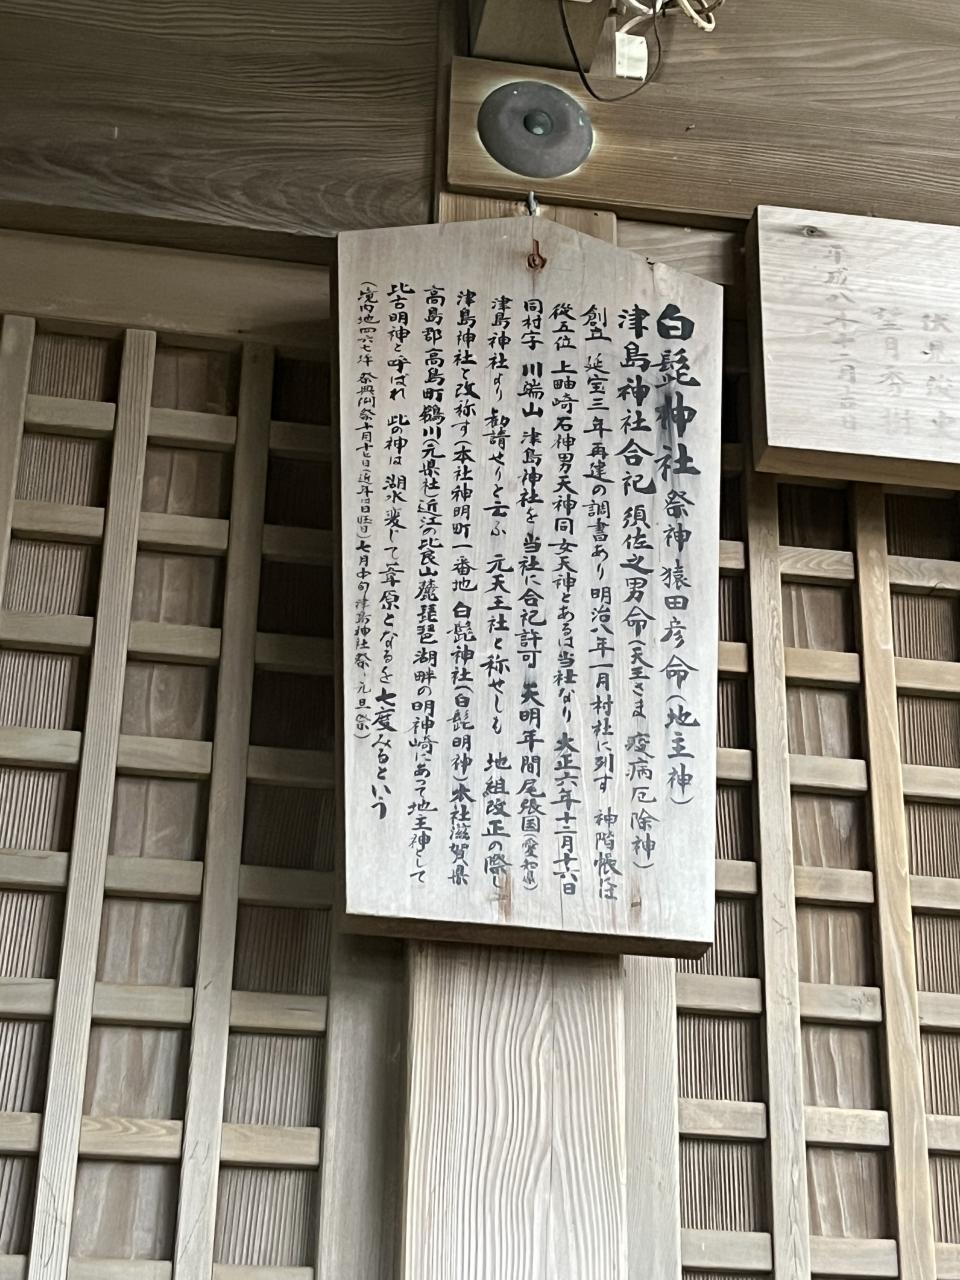 白髭神社 祭神 猿田彦命(地主神)
津島神社合祀 須佐之男命(天王さま 疫病厄除神)
創立 延宝三年再建の調書あり 明治八年一月村社に列す 神階帳
従五位 上畑崎石神男天神同女天神とあるは当社なり 大正六年十二月十六日
同村字 川端山 津島神社を当社に合祀許可 天明年間尾張国(愛知県)
津島神社より勧請せりと云ふ 元天王社と称せしも 地組改正の際し
津島神社と改称す(本社神明町一番地 白髭神社(白髭明神)本社滋賀県
高島郡高島町鵜川(元県社)近江の比良山麓琵琶湖畔の明神崎にあって地主神として
比古明神と呼ばれ 此の神は湖水変じて葦原となるを七度みるという
(境内地四六七坪 祭典例祭十月十七日(近年日曜日)七月中旬津島神社祭・元旦祭)
平成八年十二月吉